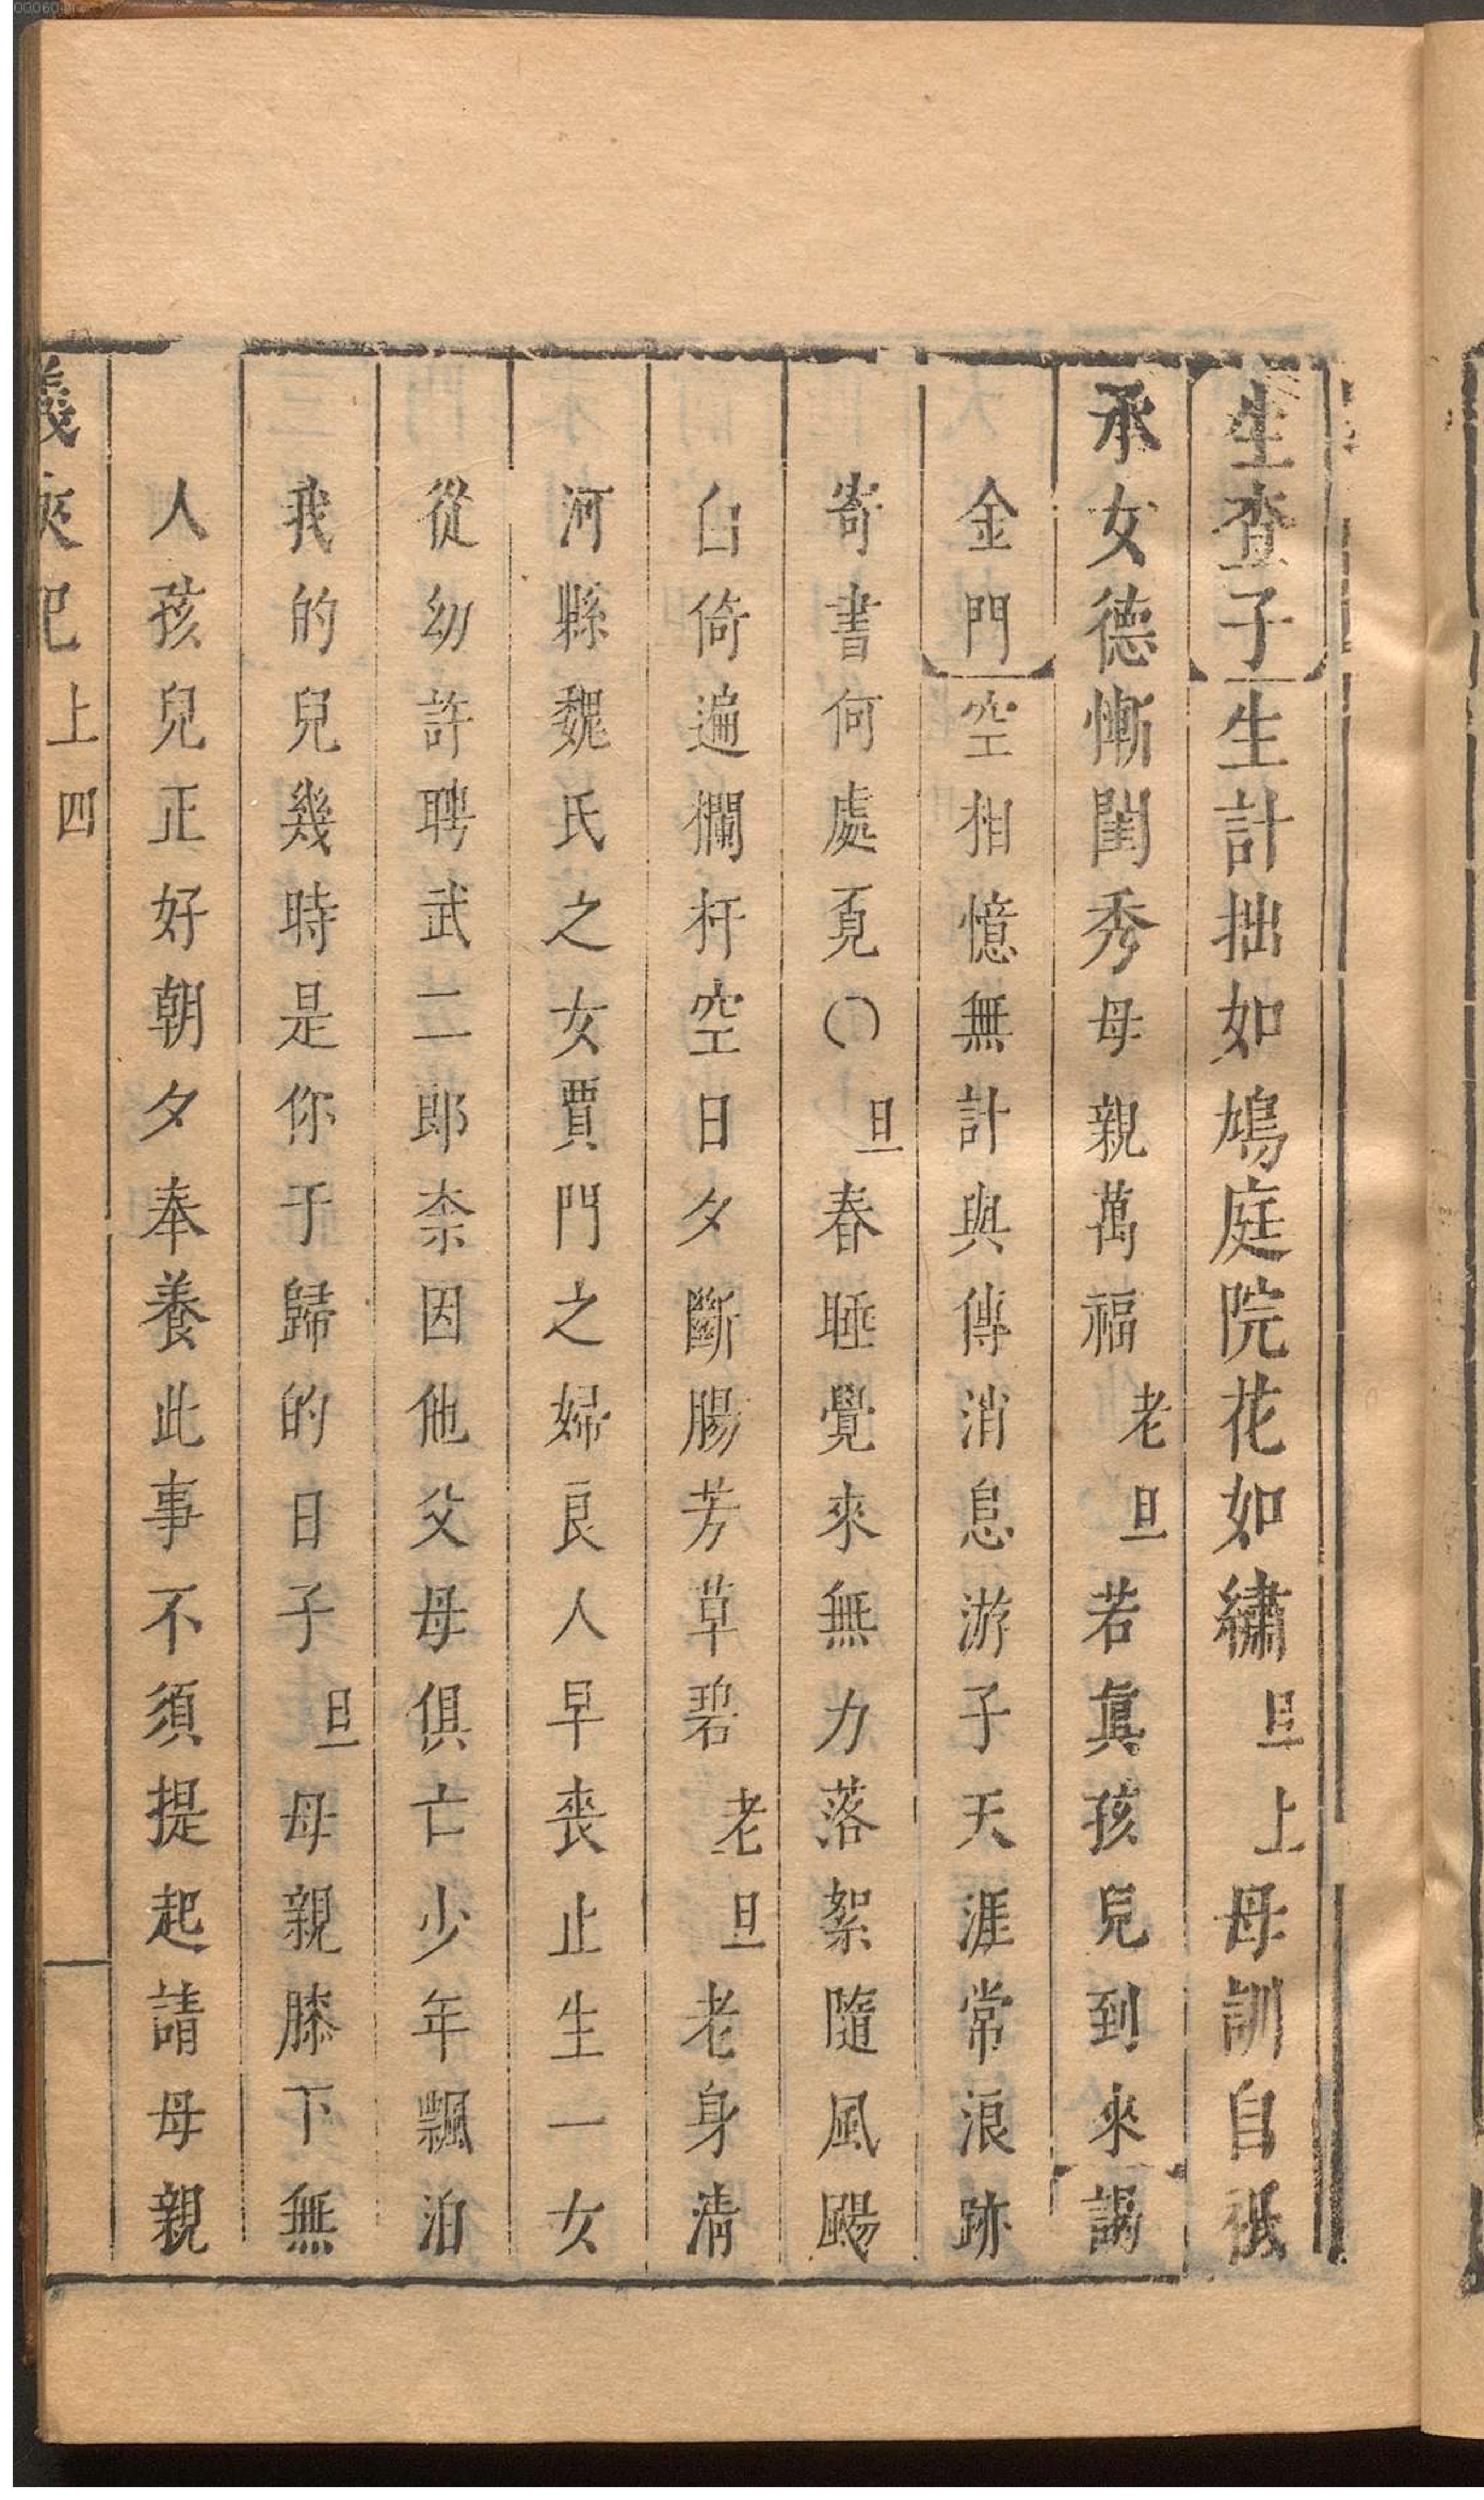 生查子生計拙如鳩庭院花如繡旦上母訓自祗
承女德慚閨秀母親萬福老旦若眞孩兒到來謁
金門空相憶無計與傳消息游子天涯常浪跡
寄書何處覓〇旦春睡覺來無力落絮隨風颺
白倚遍欄杆空日夕斷腸芳草碧老旦老身清
河縣魏氏之女賈門之婦良人早喪止生一女
從幼許聘武二郎柰因他父母俱亡少年飄泊
我的兒幾時是你于歸的日子旦母親膝下無
人孩兒正好朝夕奉養此事不須提起請母親
義俠記上四